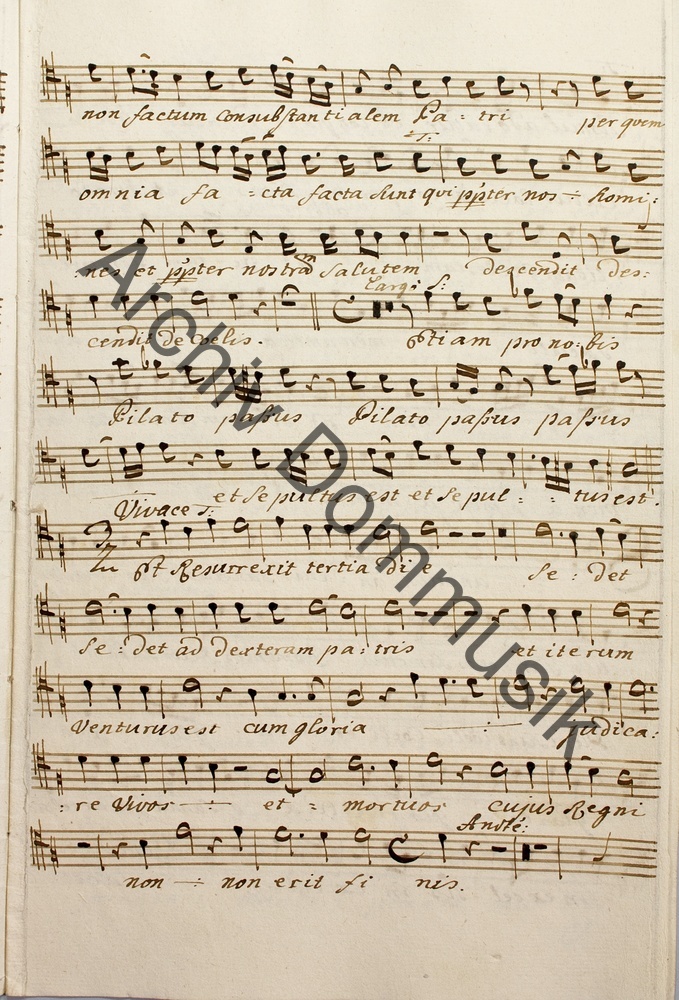 non factum Consubstantialem Pa = tri per quem
T:
omnia fa = cta facta sunt qui ppter nos ÷ homi:
:nes et ppter nostrā salutem descendit des:
Larg: S:
cendit de Coelis. Etiam pro no:bis
Pilato passus Pilato passus passus
et Sepultus est et Sepul = : tus est.
Vivace S:
Et Resurrexit tertia die Se : det
Se : det ad dexteram pa : tris et iterum
Venturus est cum gloria ÷ judica:
:re Vivos ÷ et = mortuos cujus Regni
Andte:
non ÷ non erit fi nis.
Archiv Dommusik